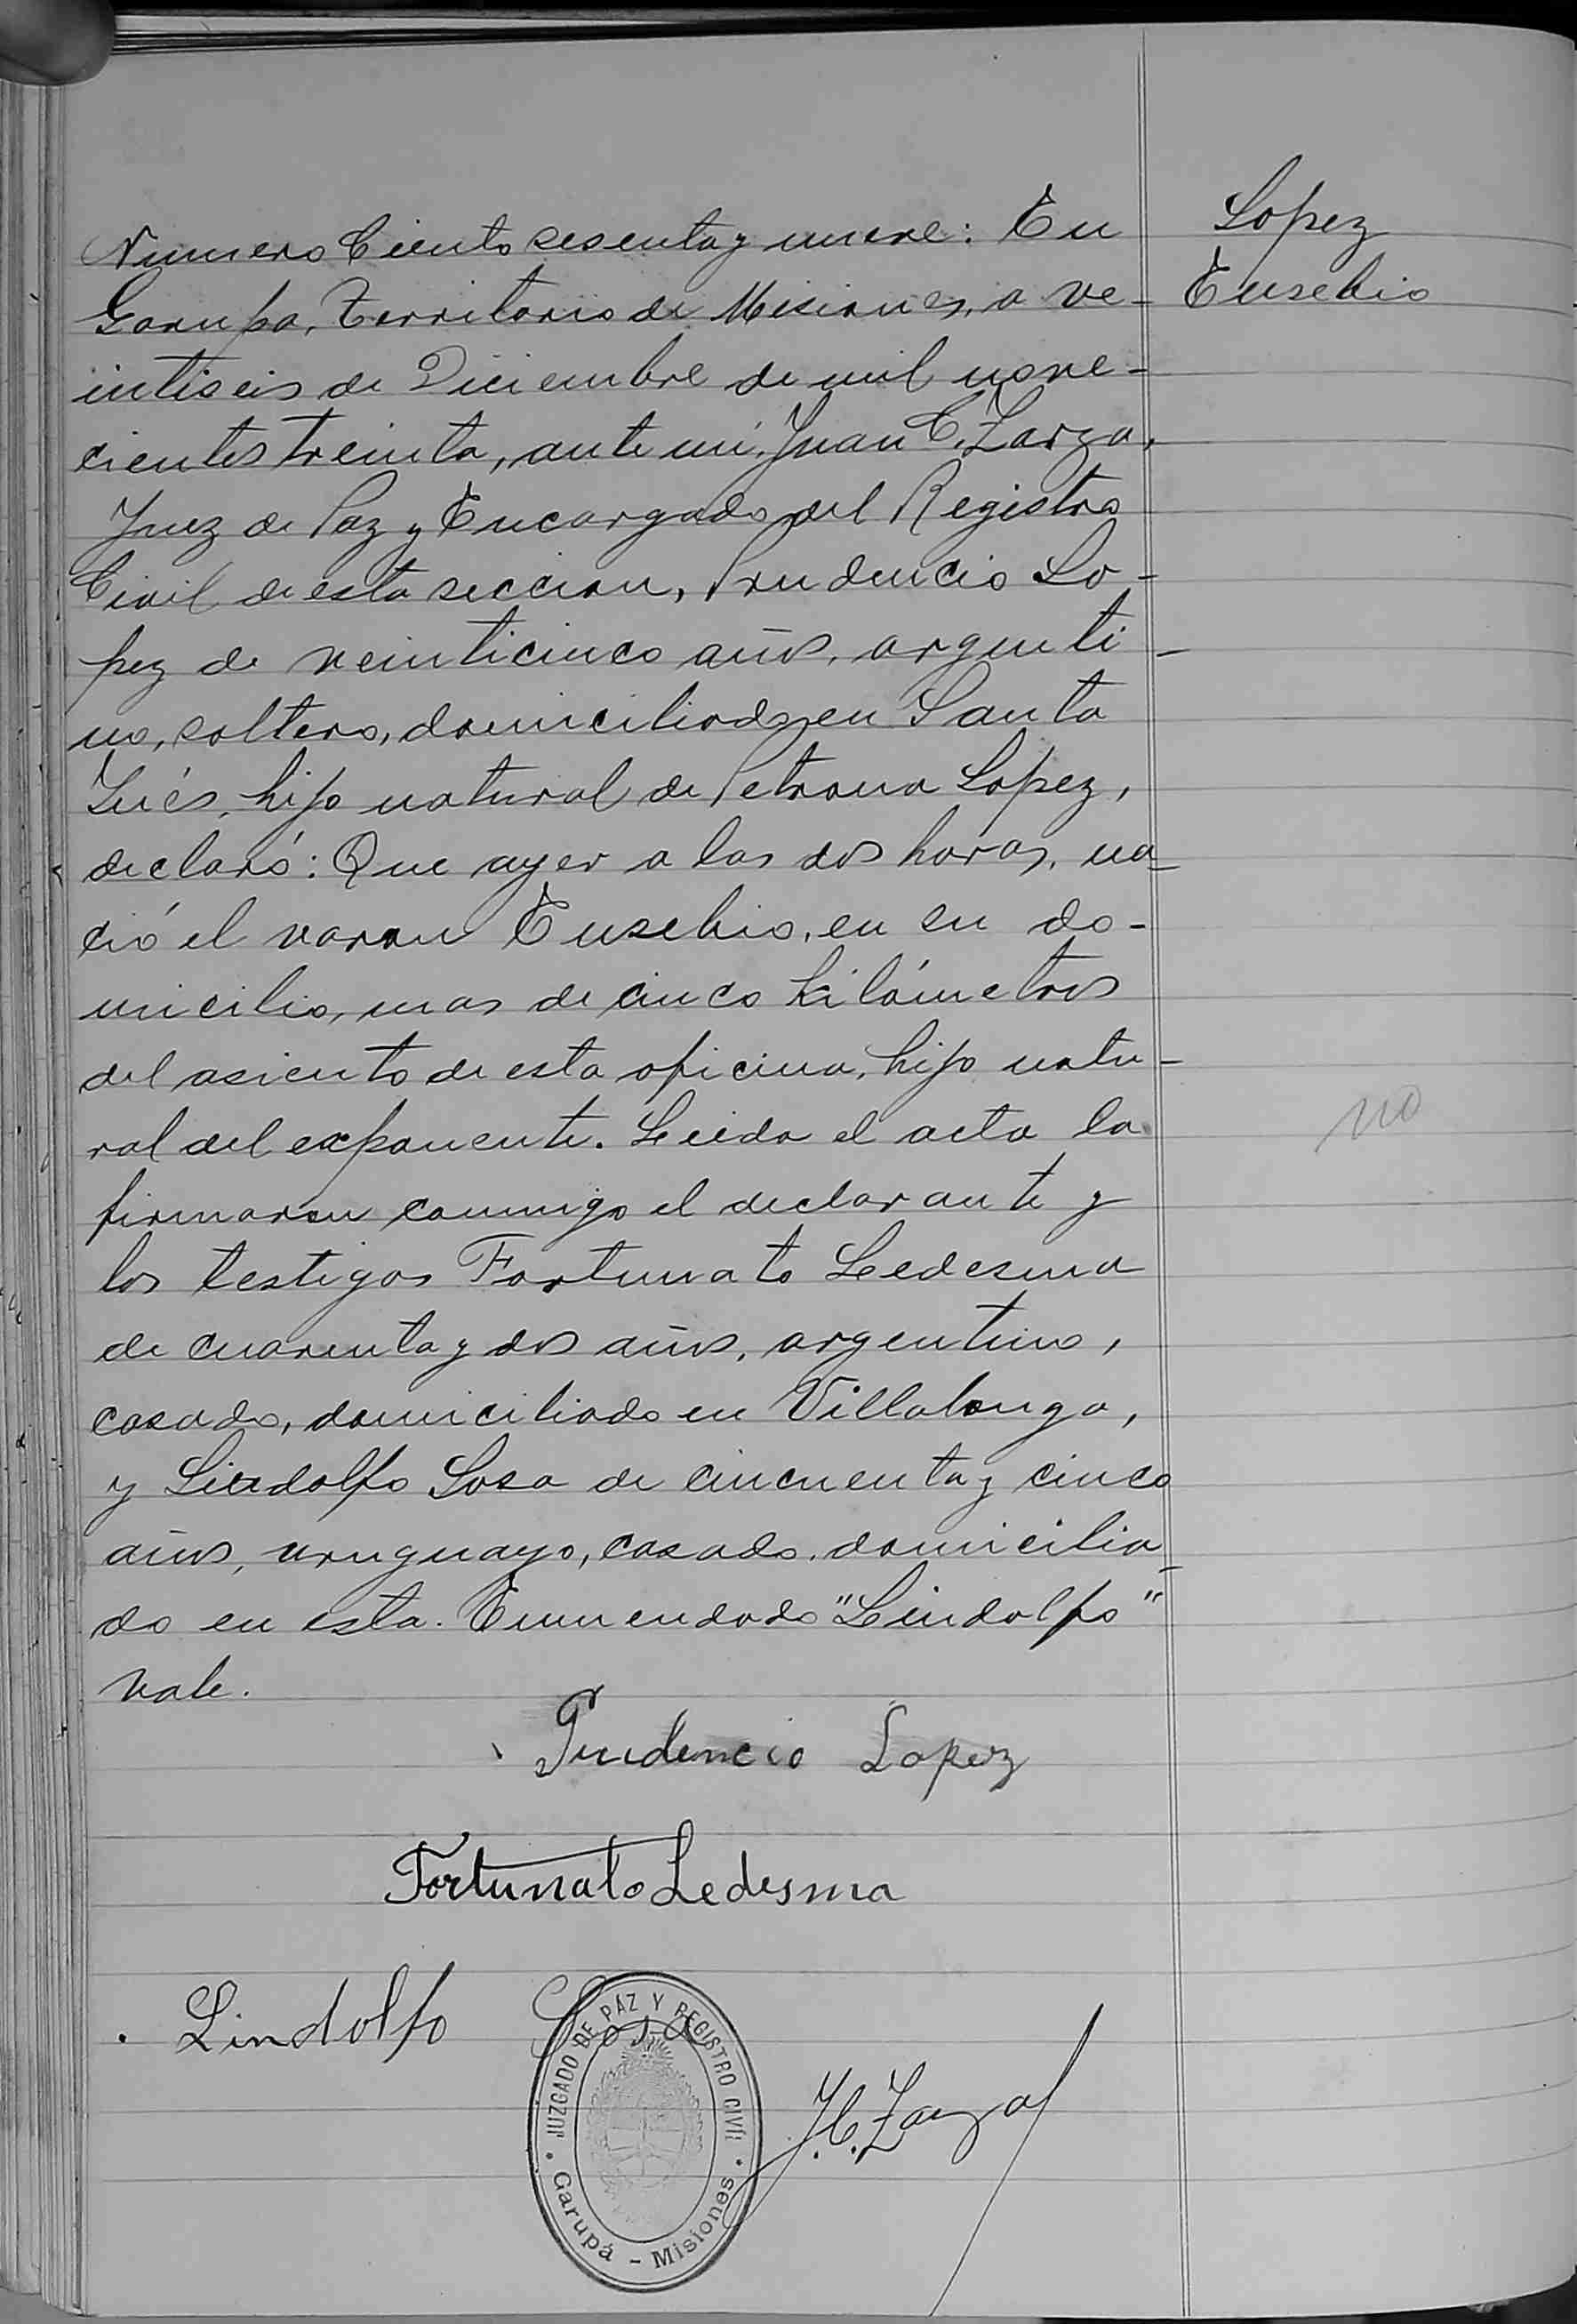 Lopez
Eusebio
Numero Ciento sesenta y nueve: En
Garupa, Territorio de Misiones, a ve-
intiseis de Diciembre de mil nove-
cientos treinta, ante mi, Juan C. Zarza,
Juez de Paz y Encargado del Registro
Civil de esta seccion, Prudencio Lo-
pez de veinticinco años, argenti-
no, soltero, domiciliado en Santa
Inés, hijo natural de Petrona Lopez,
declaró: Que ayer a las dos horas, na-
ció el varon Eusebio, en su do-
micilio, mas de cinco kilómetros
del asiento de esta oficina, hijo natu-
ral del exponente. Leida el acta la
firmaron conmigo el declarante y
los testigos Fortunato Ledesma
de cuarenta y dos años, argentino,
casado, domiciliado en Villalonga,
y Lindolfo Sosa de cincuenta y cinco
años, uruguayo, casado, domicilia-
do en esta. Enmendado "Lindolfo"
vale.
no
Prudencio Lopez
Fortunato Ledesma
Lindolfo Sosa
J.C. Zarza
JUZGADO DE PAZ Y REGISTRO CIVIL
Garupá - Misiones